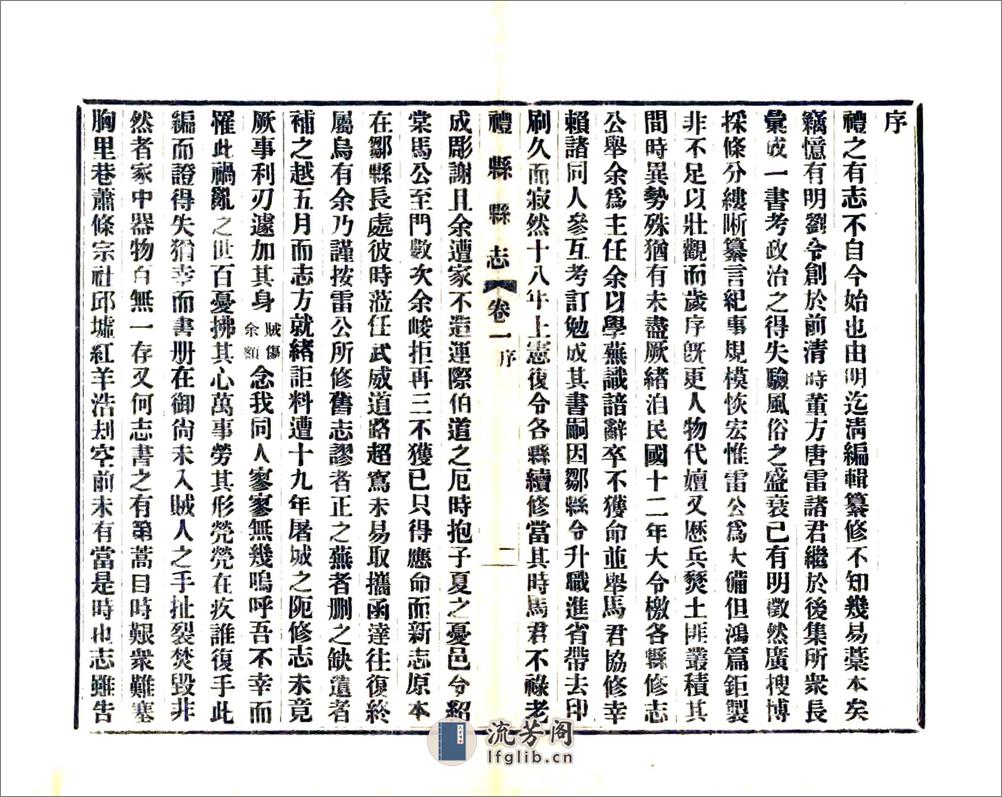 序
禮之有志不自今始也由明迄清編輯纂修不知幾易藁本矣
竊憶有明劉令創於前清時董方唐雷諸君繼於後集所衆長
彙成一書考政治之得失驗風俗之盛衰已有明徵然廣搜博
採條分縷晰纂言紀事規模恢宏惟雷公爲大備但鴻篇鉅製
非不足以壯觀而歲序旣更人物代嬗又歷兵燹土匪叢積其
間時異勢殊猶有未盡厥緒洎民國十二年大令檄各縣修志
公舉余爲主任余以學蕪識諳辭卒不獲命並舉馬君協修幸
賴諸同人參互考訂勉成其書嗣因鄒縣令升職進省帶去印
刷久而寂然十八年上憲復令各縣續修當其時馬君不祿老
禮縣縣志 卷一 序 二
成彫謝且余遭家不造運際伯道之厄時抱子夏之憂邑令紹
棠馬公至門數次余峻拒再三不獲已只得應命而新志原本
在鄒縣長處彼時蒞任武威道路超寫未易取攜函達往復終
屬烏有余乃謹按雷公所修舊志謬者正之蕪者删之缺遺者
補之越五月而志方就緒詎料遭十九年屠城之阨修志未竟
厥事利刃遽加其身賊傷余額念我同人寥寥無幾嗚呼吾不幸而
罹此禍亂之世百憂拂其心萬事勞其形煢煢在疚誰復手此
編而證得失猶幸而書册在御尙未入賊人之手扯裂焚毀非
然者家中器物百無一存又何志書之有第蒿目時艱衆難塞
胸里巷蕭條宗社邱墟紅羊浩刦空前未有當是時也志雖告
流芳阁
lfglib.cn